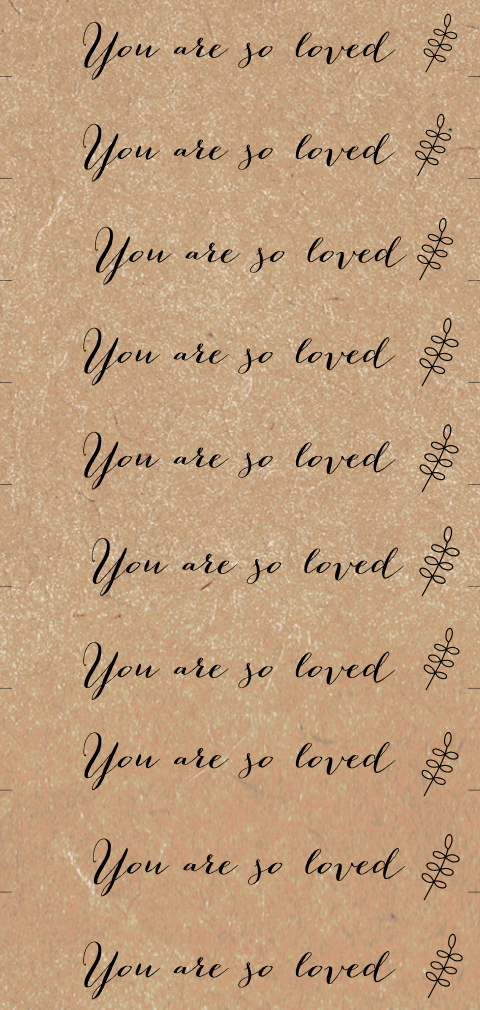 You are so loved
You are so loved
You are so loved
You are so loved
You are so loved
You are so loved
You are so loved
You are so loved
You are so loved
You are so loved